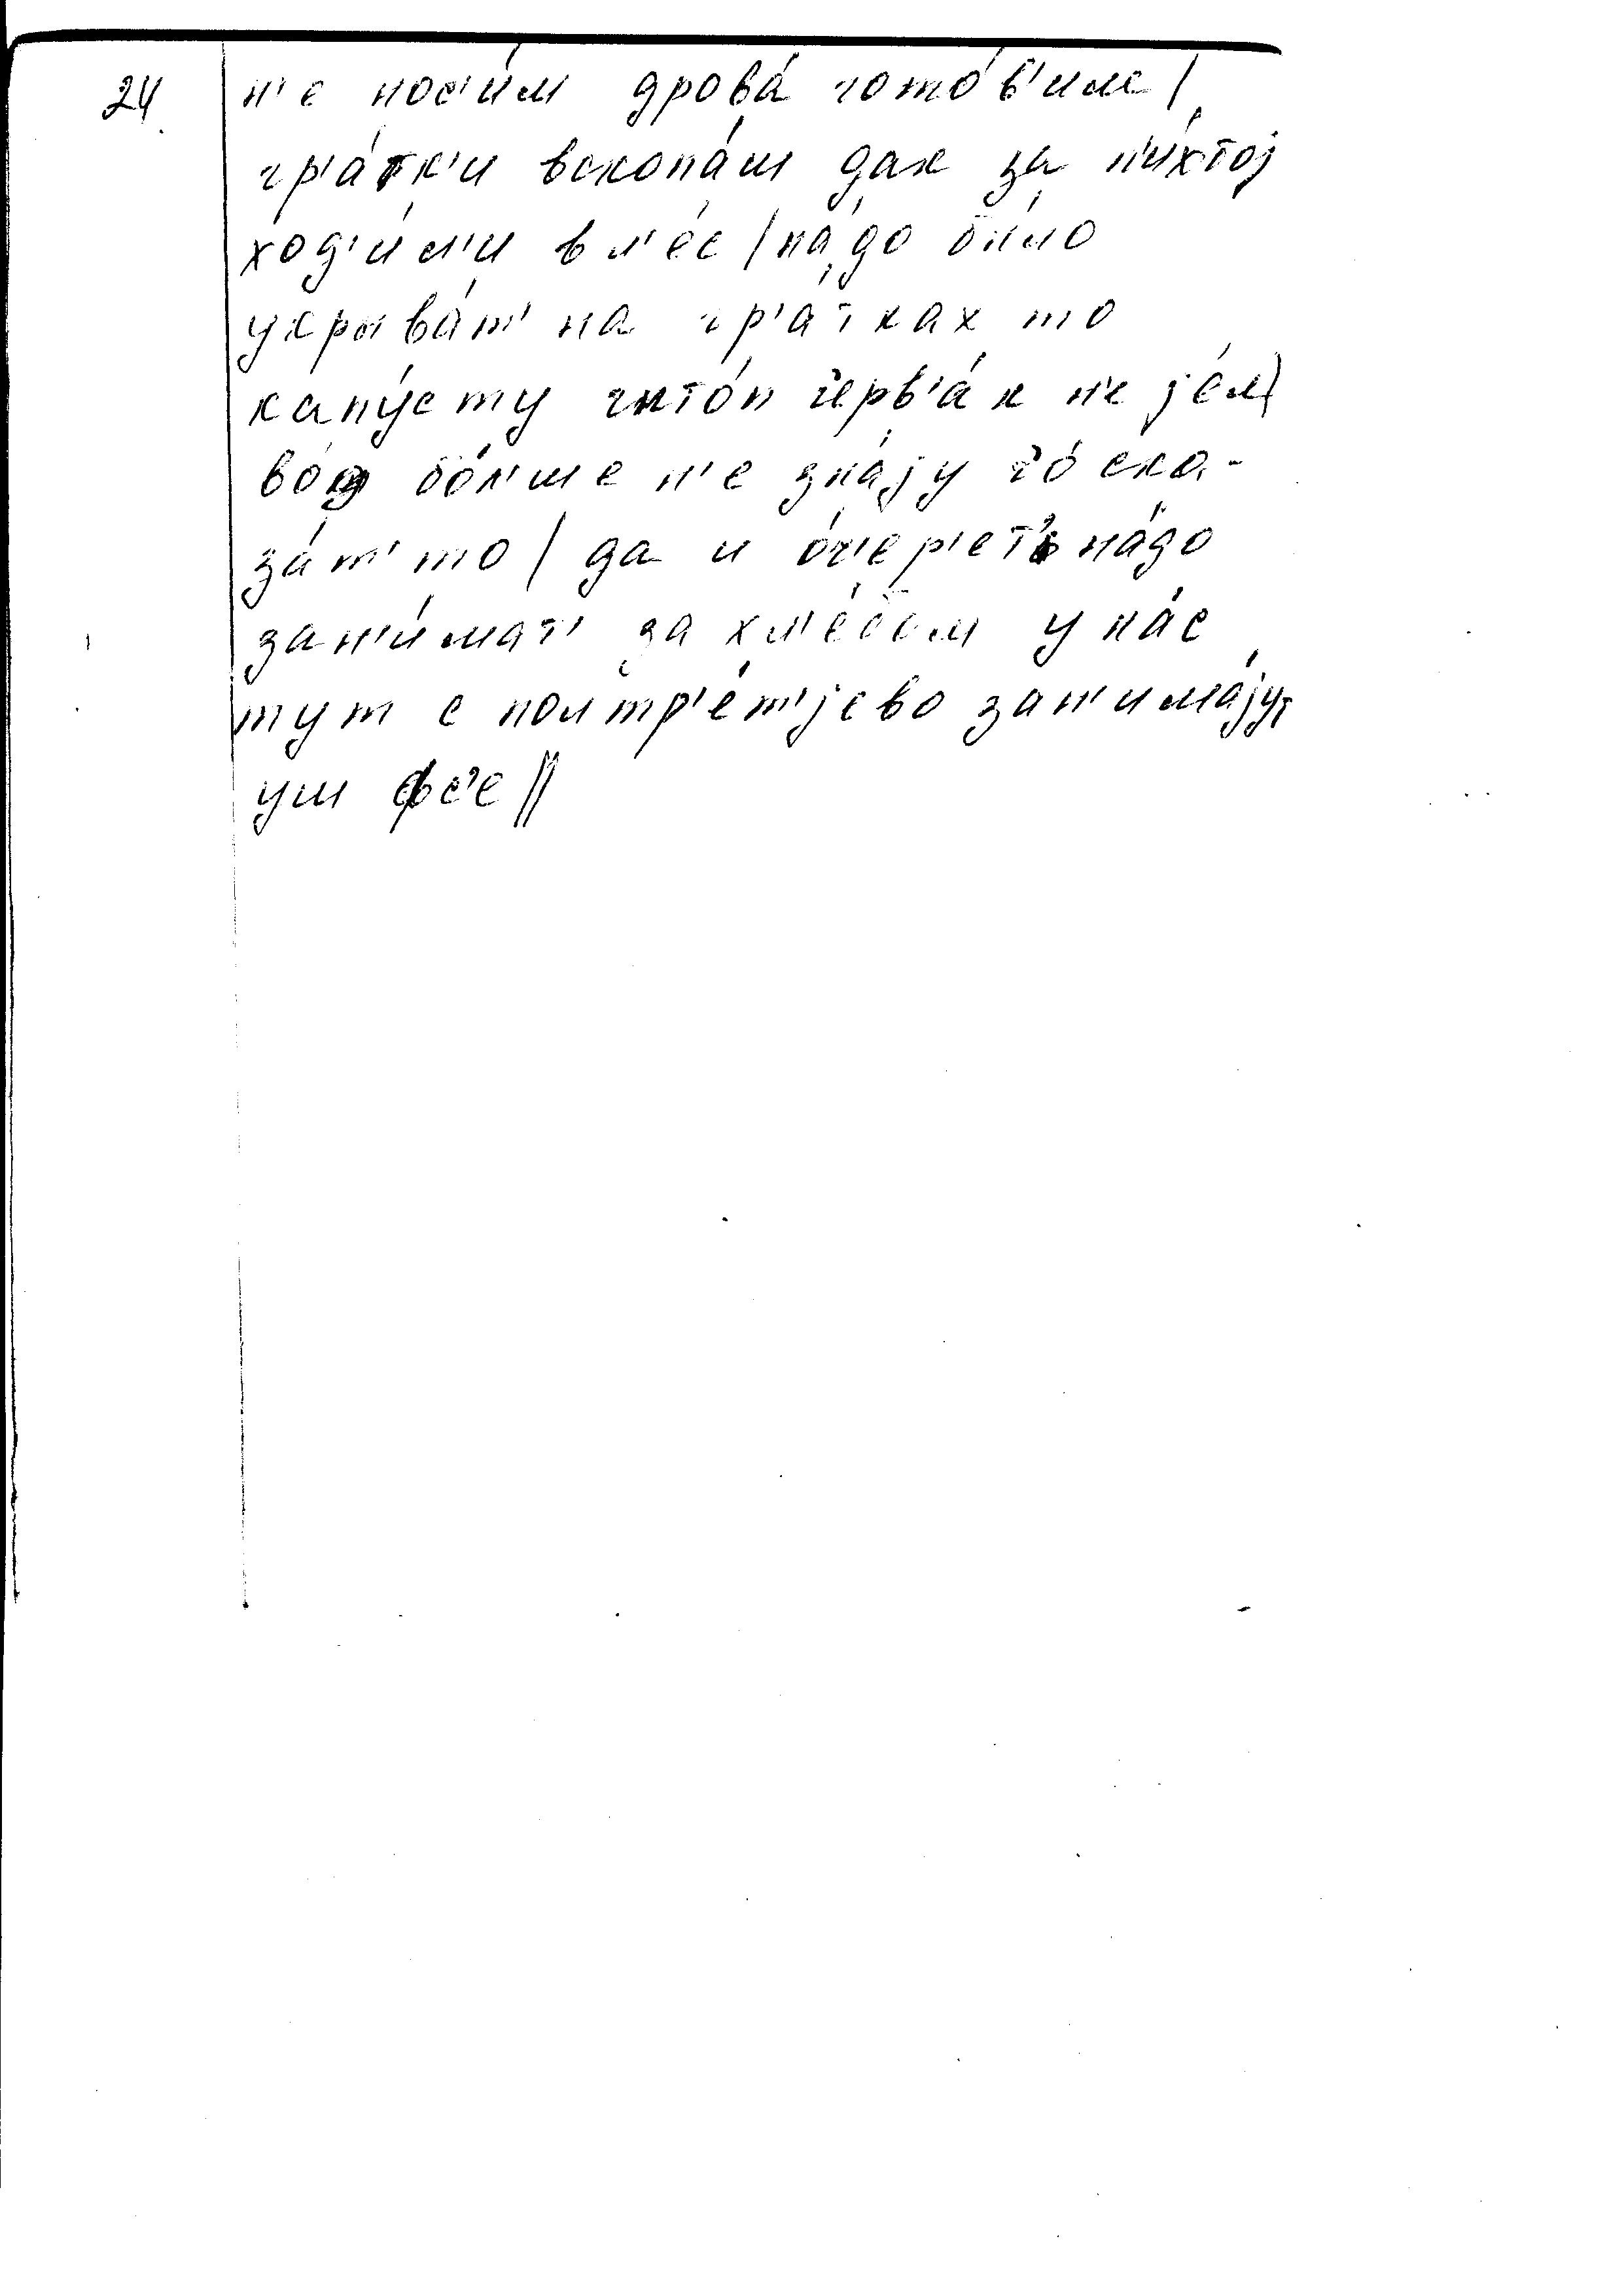 24 н'е нос'им дрова́ гото́в'иле /
гр'а́тк'и вскопа́ш дак за п'и́хтој
ход'и́л'и в л'ес / на́до было
укрыва́т' на гр'а́тках то
капу́сту што́п черв'а́к н'е је́л /
во́д бо́л'ше н'е зна́ју чо́ ска-
за́т' то / да и о́ч'ер'ет' на́до
зан'и́мат' за хл'е́бом у на́с
тут с полтр'е́т'јево зан'има́јут
уш фс'е //